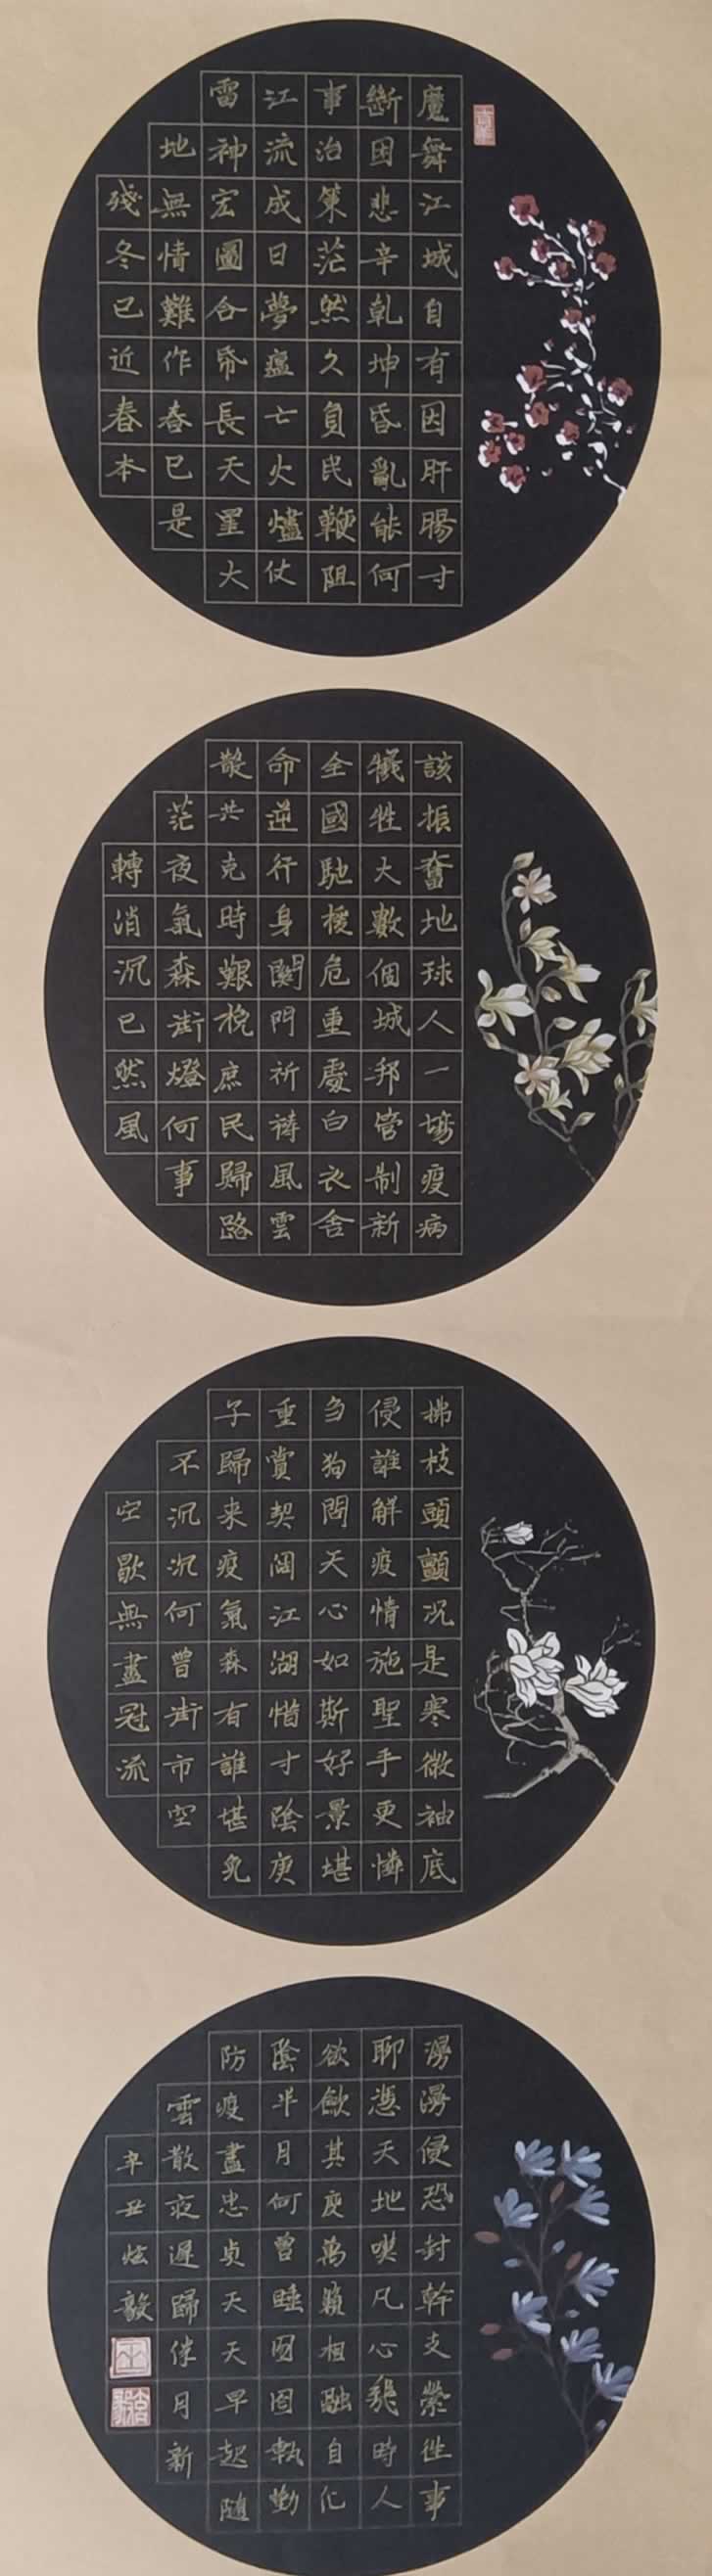 魔舞江城自有因肝腸寸
斷因悲辛乾坤昏亂能何
事治策茫然久負民鞭阻
江流成日夢瘟亡火爐仗
雷神宏圖合帋長天星大
地無情難作春已是
殘冬已近春本
該振奮地球人一場疫病
犧牲大數個城邦管制新
全國馳援危重處白衣舍
命逆行身關門祈禱風雲
散共克時艱挽庶民歸路
茫夜氣森街燈何事
轉消沉已然風
拂枝頭顫況是寒微袖底
侵誰解疫情施聖手更憐
芻狗問天心如斯好景堪
重賞契闊江湖惜寸陰庚
子歸来疫氣森有誰堪
不沉沉何曾街市空
空歇無盡冠流
漫侵恐封幹支縈徃事
聊憑天地嘆凡心幾時人
欲歛其度萬籟相融自化
陰半月何曾睡圄固執勤
防疫盡忠貞天天早起隨
雲散夜遲歸伴月新
辛丑炫毅